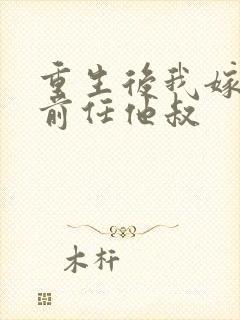 重生後我嫁
前任他叔
木杆